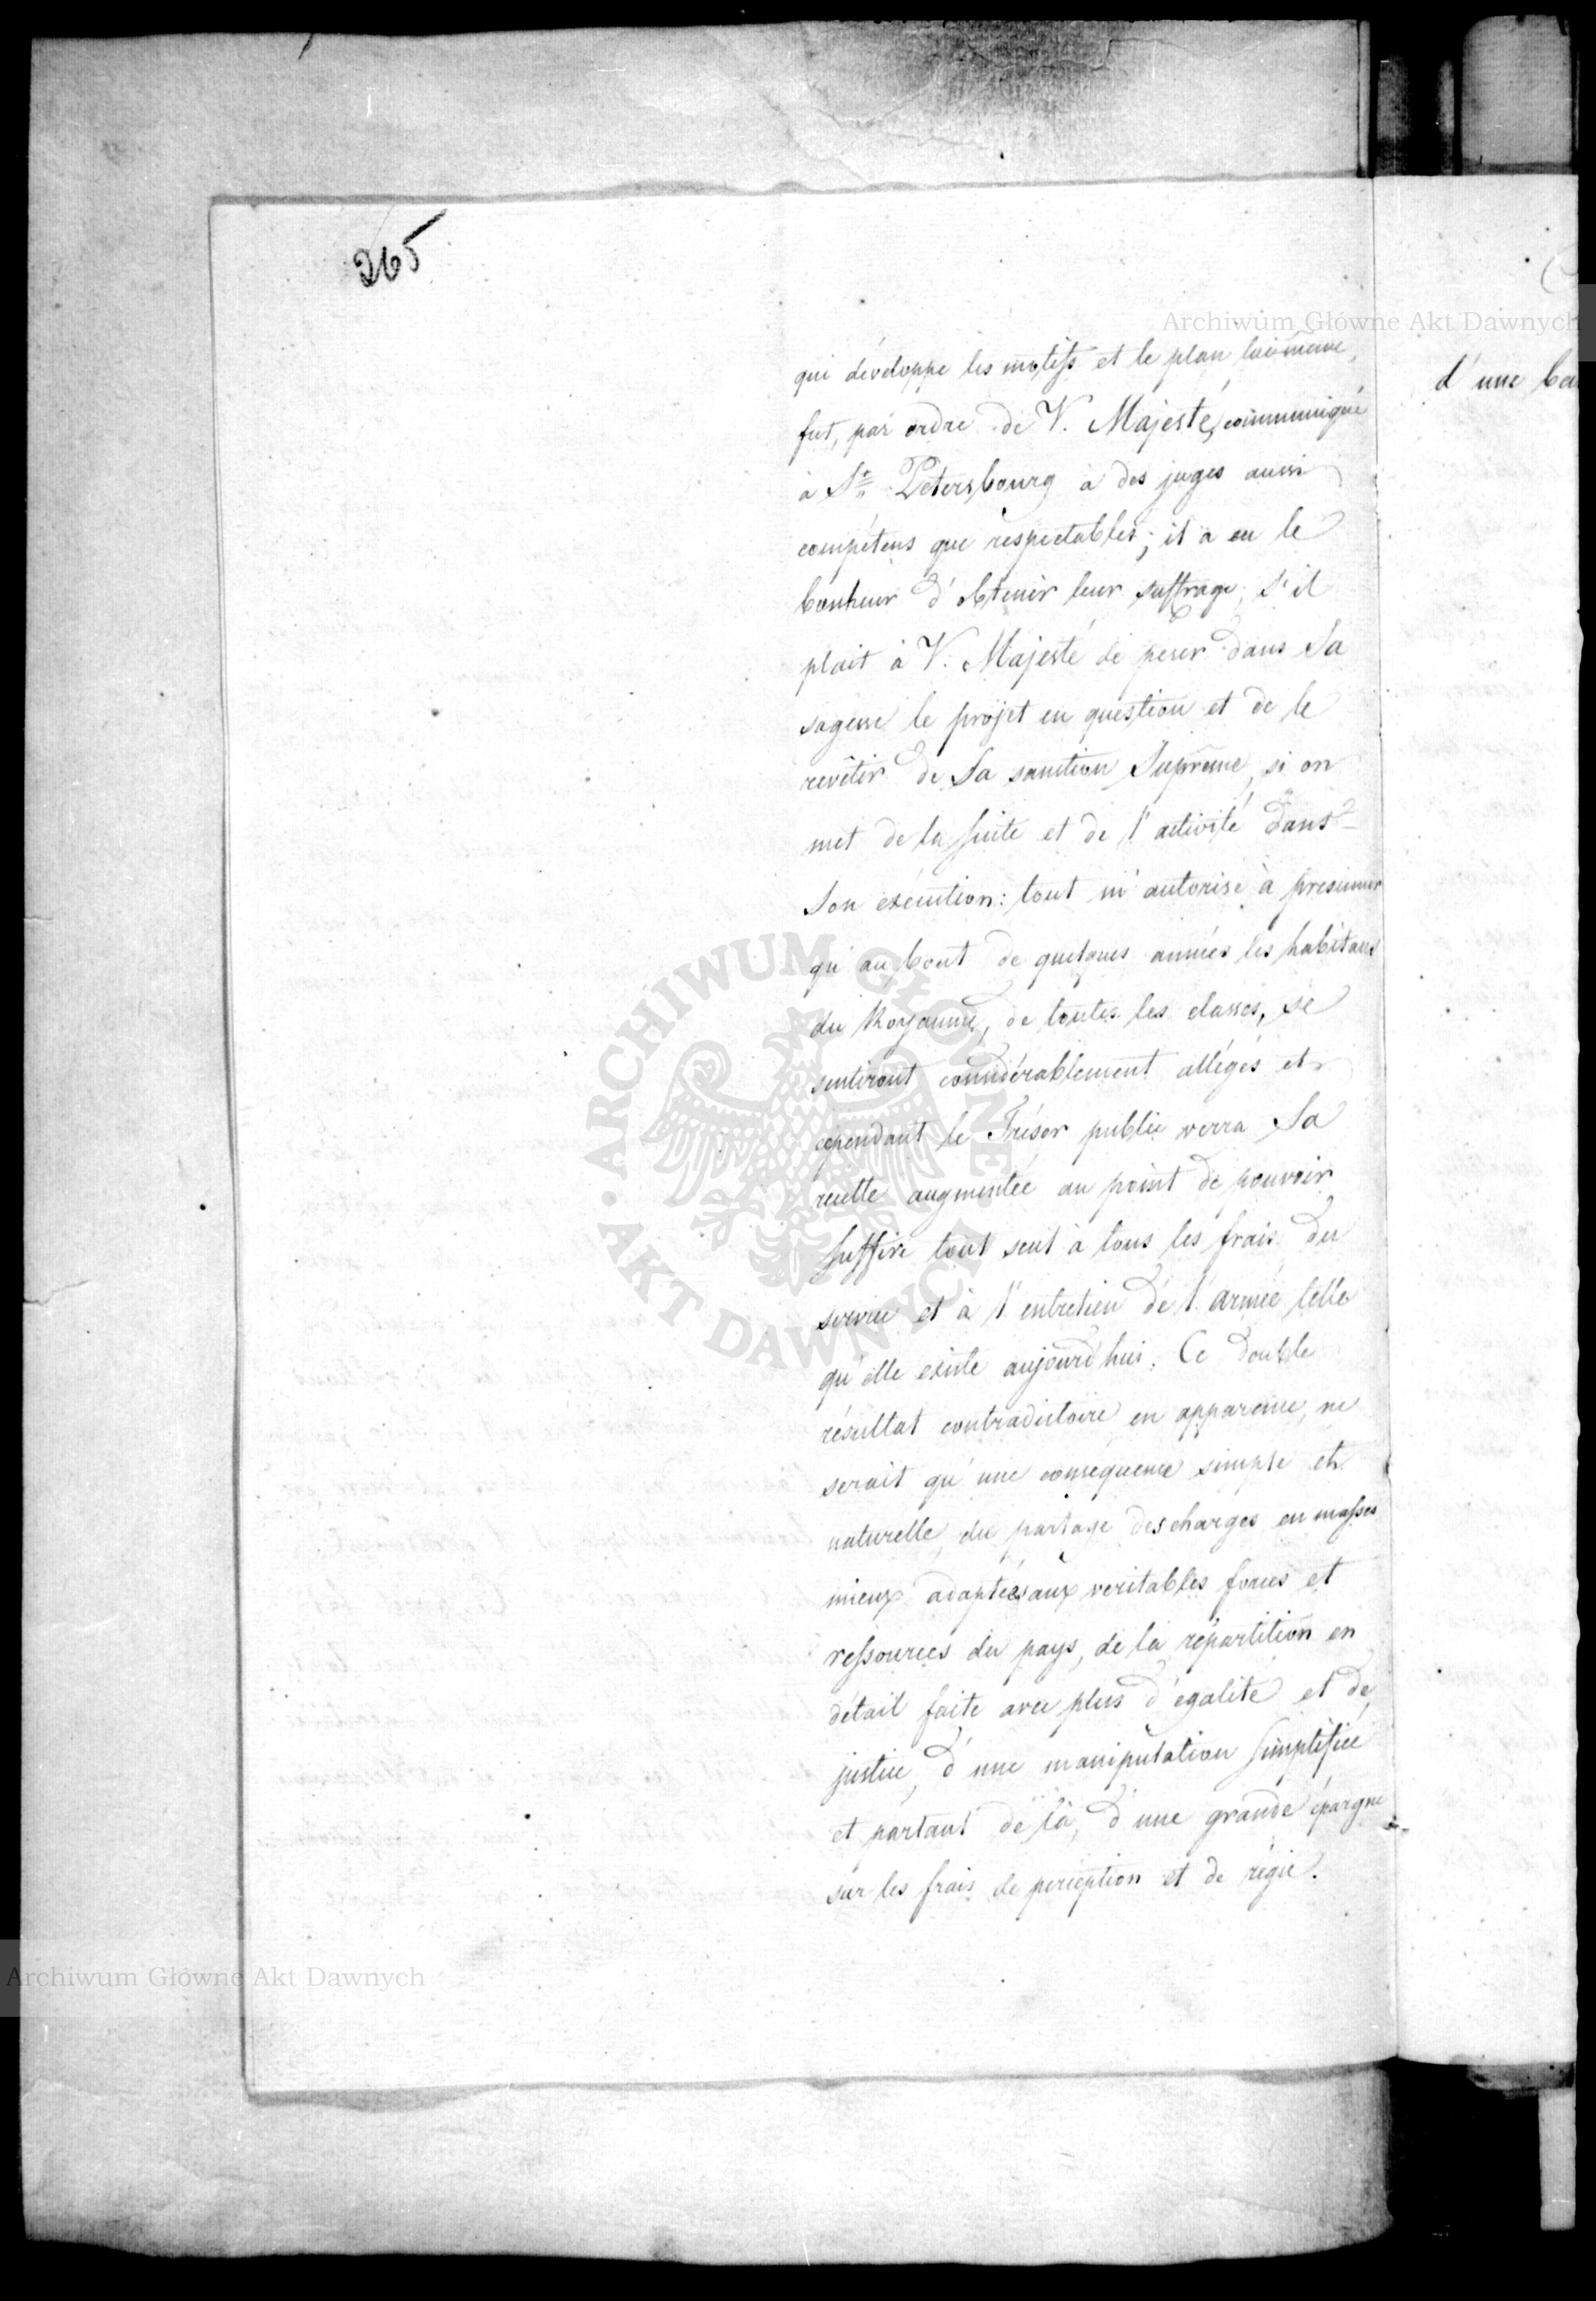 265
qui développe les motifs et le plan lui même,
fut, par ordre de V. Majesté, communiqué
à St. Petersbourg à des juges aussi
compétens que respectables; il a eu le
bonheur d'obtenir leur suffrage; S'il
plait à V. Majesté de peser dans Sa
sagesse le projet en question et de le
revêtir de Sa sanction Suprême, si on
met de la suite et de l'activité dans
Son exécution: tout m'autorise à presumer
qu'au bout de quelques années les habitans
du Royaume, de toutes les classes, se
sentiront considérablement allégés et
cependant le Trésor public verra Sa
recette augmentée au point de pouvoir
suffire tout seul à tous les frais du
service et à l'entretien de l'armée telle
qu'elle existe aujourd'hui. Ce double
résultat contradictoire en apparence, ne
serait qu'une conséquence simple et
naturelle du partage des charges en masses
mieux adaptées aux veritables forces et
ressources du pays, de la répartition en
détail faite avec plus d'égalité et de
justice, d'une manipulation simplifiée
et partant de là, d'une grande épargne
sur les frais de perception et de régie.
d'une
Archiwum Główne Akt Dawnych
ARCHIWUM GŁÓWNE AKT DAWNYCH
Archiwum Główne Akt Dawnych